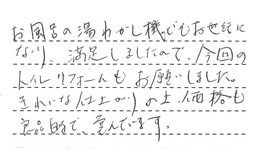 お風呂の湯わかし機でもお世話に
なり、満足しましたので、今回の
トイレリフォームもお願いしました。
きれいな仕上がりの上、価格も
良心的で、喜んでいます。